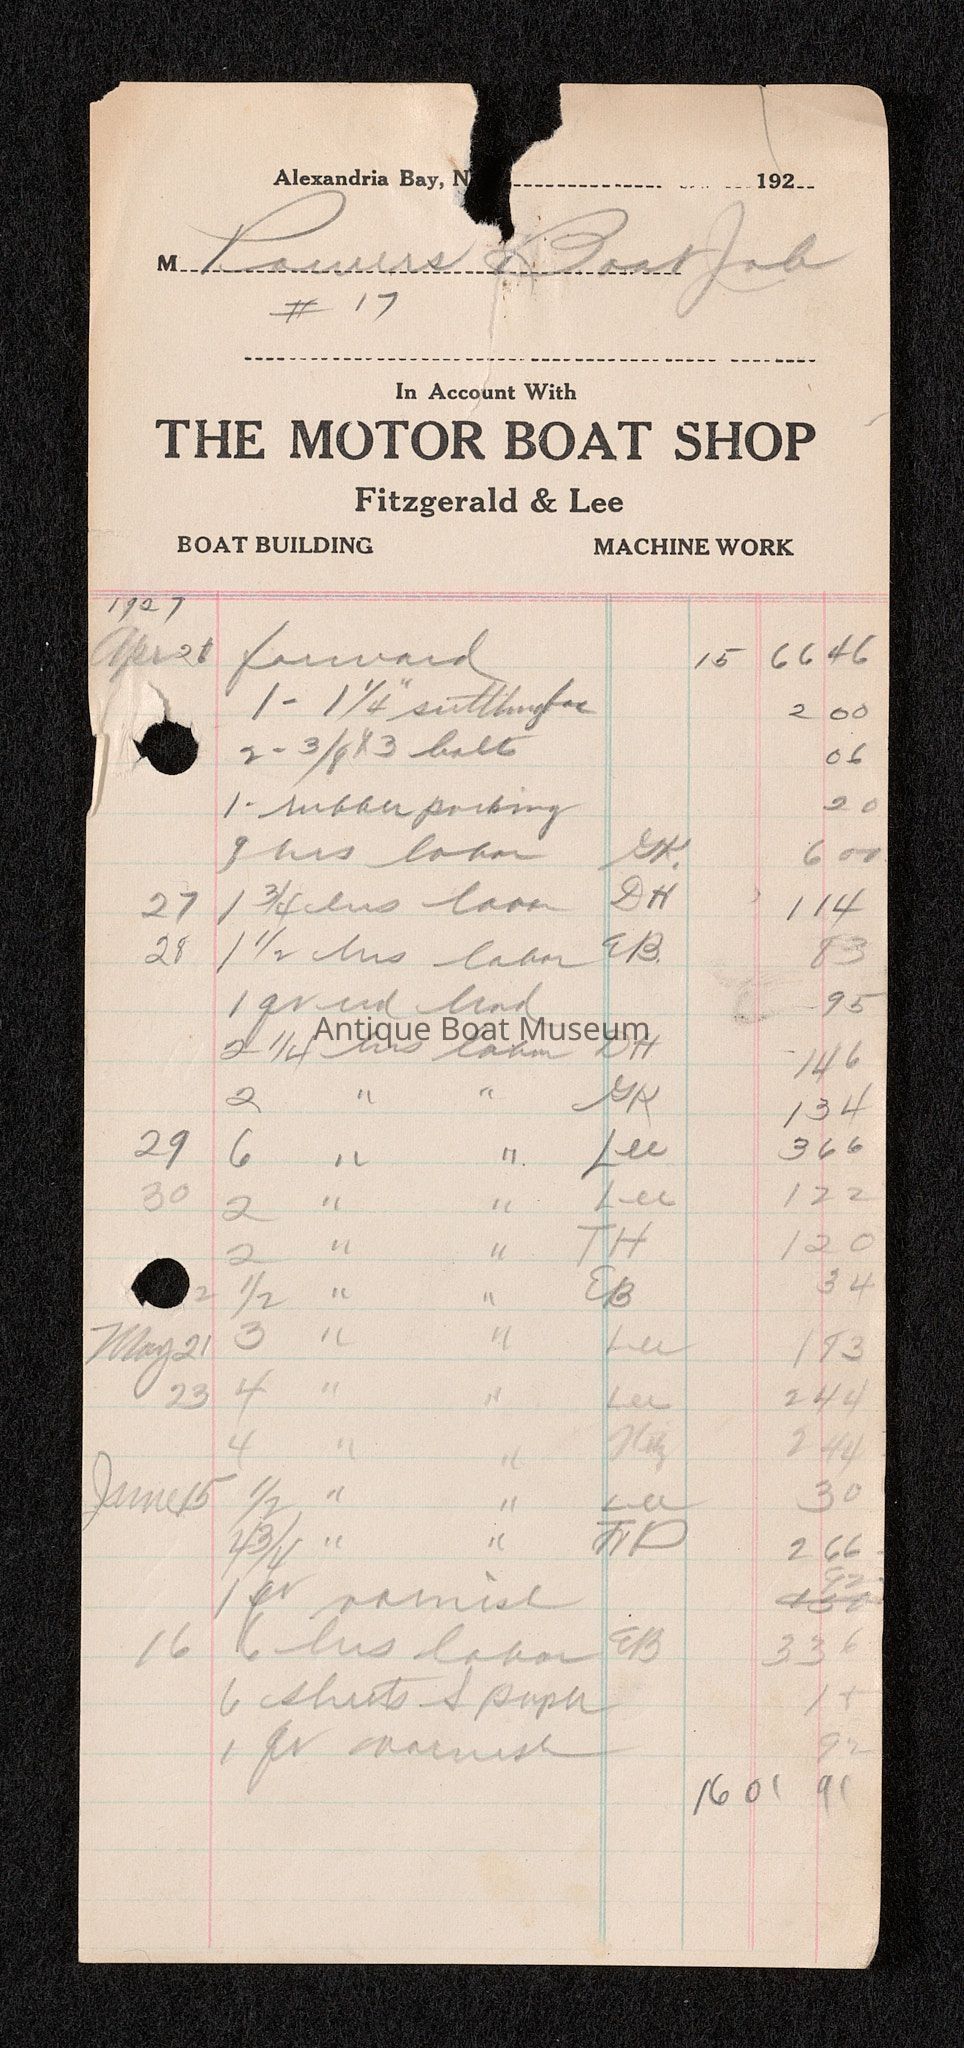 Alexandria Bay, N 192
M Powers Boat Job
# 17
In Account With
THE MOTOR BOAT SHOP
Fitzgerald & Lee
BOAT BUILDING MACHINE WORK
1927
Apr 21 forward 15 66 46
1 - 1 1/4" 2 00
2 - 3/8 x 3 bolts 06
1 - rubber packing 20
9 hrs labor GK. 6 00
27 1 3/4 hrs labor DH 1 14
28 1 1/2 hrs labor EB. 83
1 qr red lead 95
Antique Boat Museum
2 1/4 hrs labor DH 1 46
2 " " GK 1 34
29 6 " " Lee 3 66
30 2 " " Lee 1 22
2 " " TH 1 20
2 1/2 " " EB 34
May 21 3 " " Lee 1 83
23 4 " " Lee 2 44
4 " " Fitz 2 44
June 15 1/2 " " Lee 30
4 3/4 " " 2 66
1 qr varnish 92
16 6 hrs labor EB 3 36
6 sheets S paper
1 qr varnish 92
16 01 91